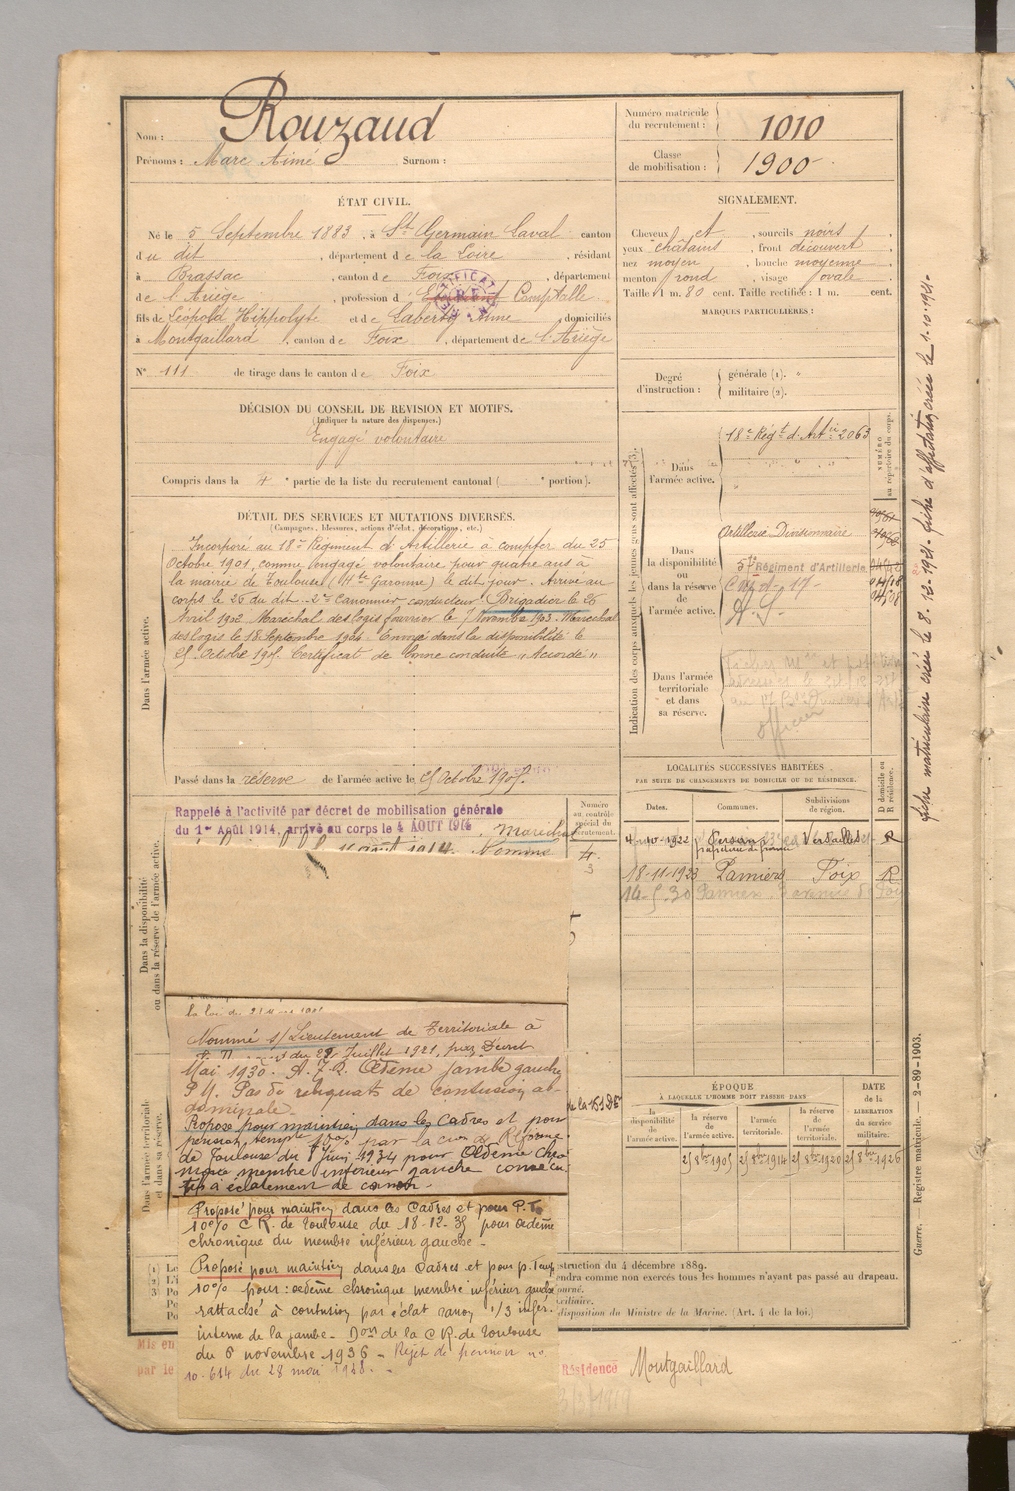 Nom : Rouzaud
Prénoms : Marc Aimé Surnom :
Numéro matricule du recrutement : 1010
Classe de mobilisation : 1900
ÉTAT CIVIL.
Né le 5 Septembre 1883, à St Germain Laval canton
du dit, département de la Loire, résidant
à Brassac, canton de Foix, département
de l'Ariège, profession d Comptable
fils de Léopold Hippolyte et de Anne domiciliés
à Montgaillard, canton de Foix, département de l'Ariège
N° 111 de tirage dans le canton de Foix
SIGNALEMENT.
Cheveux et, sourcils noirs
yeux châtains, front découvert
nez moyen, bouche moyenne
menton rond, visage ovale
Taille 1 m. 80 cent. Taille rectifiée : 1 m. cent.
MARQUES PARTICULIÈRES :
Degré d'instruction : générale (1). "
militaire (2).
DÉCISION DU CONSEIL DE REVISION ET MOTIFS.
(Indiquer la nature des dispenses.)
Engagé volontaire
Compris dans la 4e partie de la liste du recrutement cantonal ( e portion).
DÉTAIL DES SERVICES ET MUTATIONS DIVERSES.
(Campagnes, blessures, actions d'éclat, décorations, etc.)
Dans l'armée active.
Incorporé au 18e Régiment d'Artillerie à compter du 25
Octobre 1901, comme engagé volontaire pour quatre ans à
la mairie de Toulouse (Hte Garonne) le dit jour. Arrivé au
corps le 26 du dit. 2e Canonnier conducteur. Brigadier le 26
Avril 1902. Maréchal des logis fourrier le 7 Novembre 1903. Maréchal
des logis le 18 Septembre 1904. Envoyé dans la disponibilité le
25 Octobre 1905. Certificat de bonne conduite "Accordé"
Passé dans la réserve de l'armée active le 25 Octobre 1905.
Indication des corps auxquels les jeunes gens sont affectés (3).
Dans l'armée active.
18e Régt d'Artrie 2063
NUMÉRO au répertoire du corps.
Dans la disponibilité ou dans la réserve de l'armée active.
Artillerie Divisionnaire
57e Régiment d'Artillerie
Dans l'armée territoriale et dans sa réserve.
officier
fiche matriculaire créée le 8.12.1921. fiche d'affectation créée le 1.10.1921.
Dans la disponibilité ou dans la réserve de l'armée active.
Rappelé à l'activité par décret de mobilisation générale
du 1er Août 1914, arrivé au corps le 4 AOUT 1914. Maréchal
août 1914. Nommé
Numéro au contrôle spécial du recrutement.
LOCALITÉS SUCCESSIVES HABITÉES
PAR SUITE DE CHANGEMENTS DE DOMICILE OU DE RÉSIDENCE.
Dates. Communes. Subdivisions de région. D domicile ou R résidence.
4-10-1922 Versailles R
18-11-1923 Pamiers Foix R
14-5-30 Pamiers
Dans l'armée territoriale et dans sa réserve.
Nommé s/Lieutenant de Territoriale à
du 22 Juillet 1921, par Décret
Mai 1930. Œdème jambe gauche
P.M. Pas de reliquats de contusion ab-
dominale.
Proposé pour maintien dans les Cadres et pour
pension temp 10% par la Cion de Réforme
de Toulouse du 8 Juin 1934 pour Œdème chro-
nique membre inférieur gauche consécu-
tif à éclatement de canon.
Proposé pour maintien dans les Cadres et pour P.T.
10% C.R. de Toulouse du 18-12-35 pour œdème
chronique du membre inférieur gauche -
Proposé pour maintien dans les Cadres et pour p. Temp
10% pour : œdème chronique membre inférieur gauche
rattaché à contusion par éclat canon 1/3 infér.
interne de la jambe - Don de la C.R. de Toulouse
du 6 novembre 1936 - Rejet de pension no
10.614 du 28 mai 1938. -
ÉPOQUE
À LAQUELLE L'HOMME DOIT PASSER DANS
la disponibilité de l'armée active.
la réserve de l'armée active.
l'armée territoriale.
la réserve de l'armée territoriale.
DATE de la LIBÉRATION du service militaire.
25 8bre 1905 25 8bre 1914 25 8bre 1920 25 8bre 1926
struction du 4 décembre 1889.
endra comme non exercés tous les hommes n'ayant pas passé au drapeau.
ourné.
xiliaire.
disposition du Ministre de la Marine. (Art. 4 de la loi.)
Guerre. — Registre matricule. — 2-89-1903.
Mis en
par le
Résidence Montgaillard